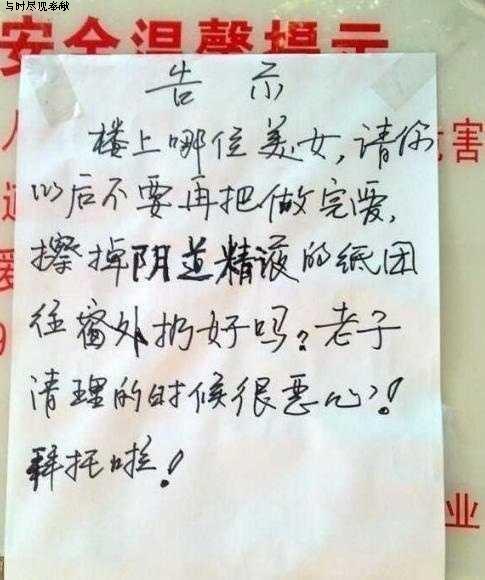 与时尽现奉献
安全温馨提示
告示
楼上哪位美女,请你
以后不要再把做完爱,
擦掉阴道精液的纸团
往窗外扔好吗?老子
清理的时候很恶心!
拜托啦!
危害
业